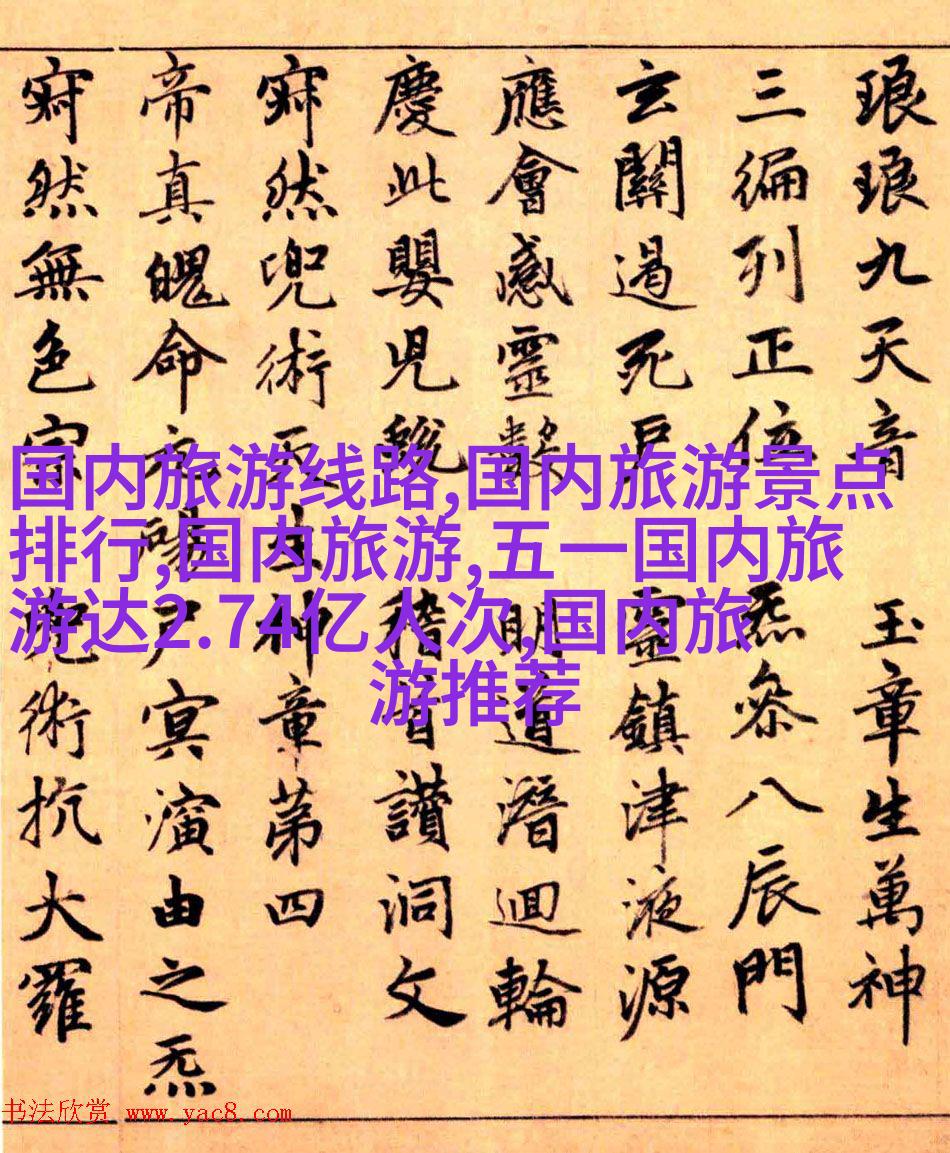 琅琅九天音 玉章生萬神
三徧列正位 炁參八辰門
玄關過死戶 靈鎮津液源
應會感靈數 明道潛迴輪
慶此嬰兒 稽首讚洞文
寂然兜術天生神章第四
帝真魄命元陽尸冥演由之炁
寂然無色宗 兜術抗大羅
国内旅游线路,国内旅游景点
排行,国内旅游,五一国内旅
游达2.74亿人次,国内旅
游推荐
书法欣赏 www.yac8.com